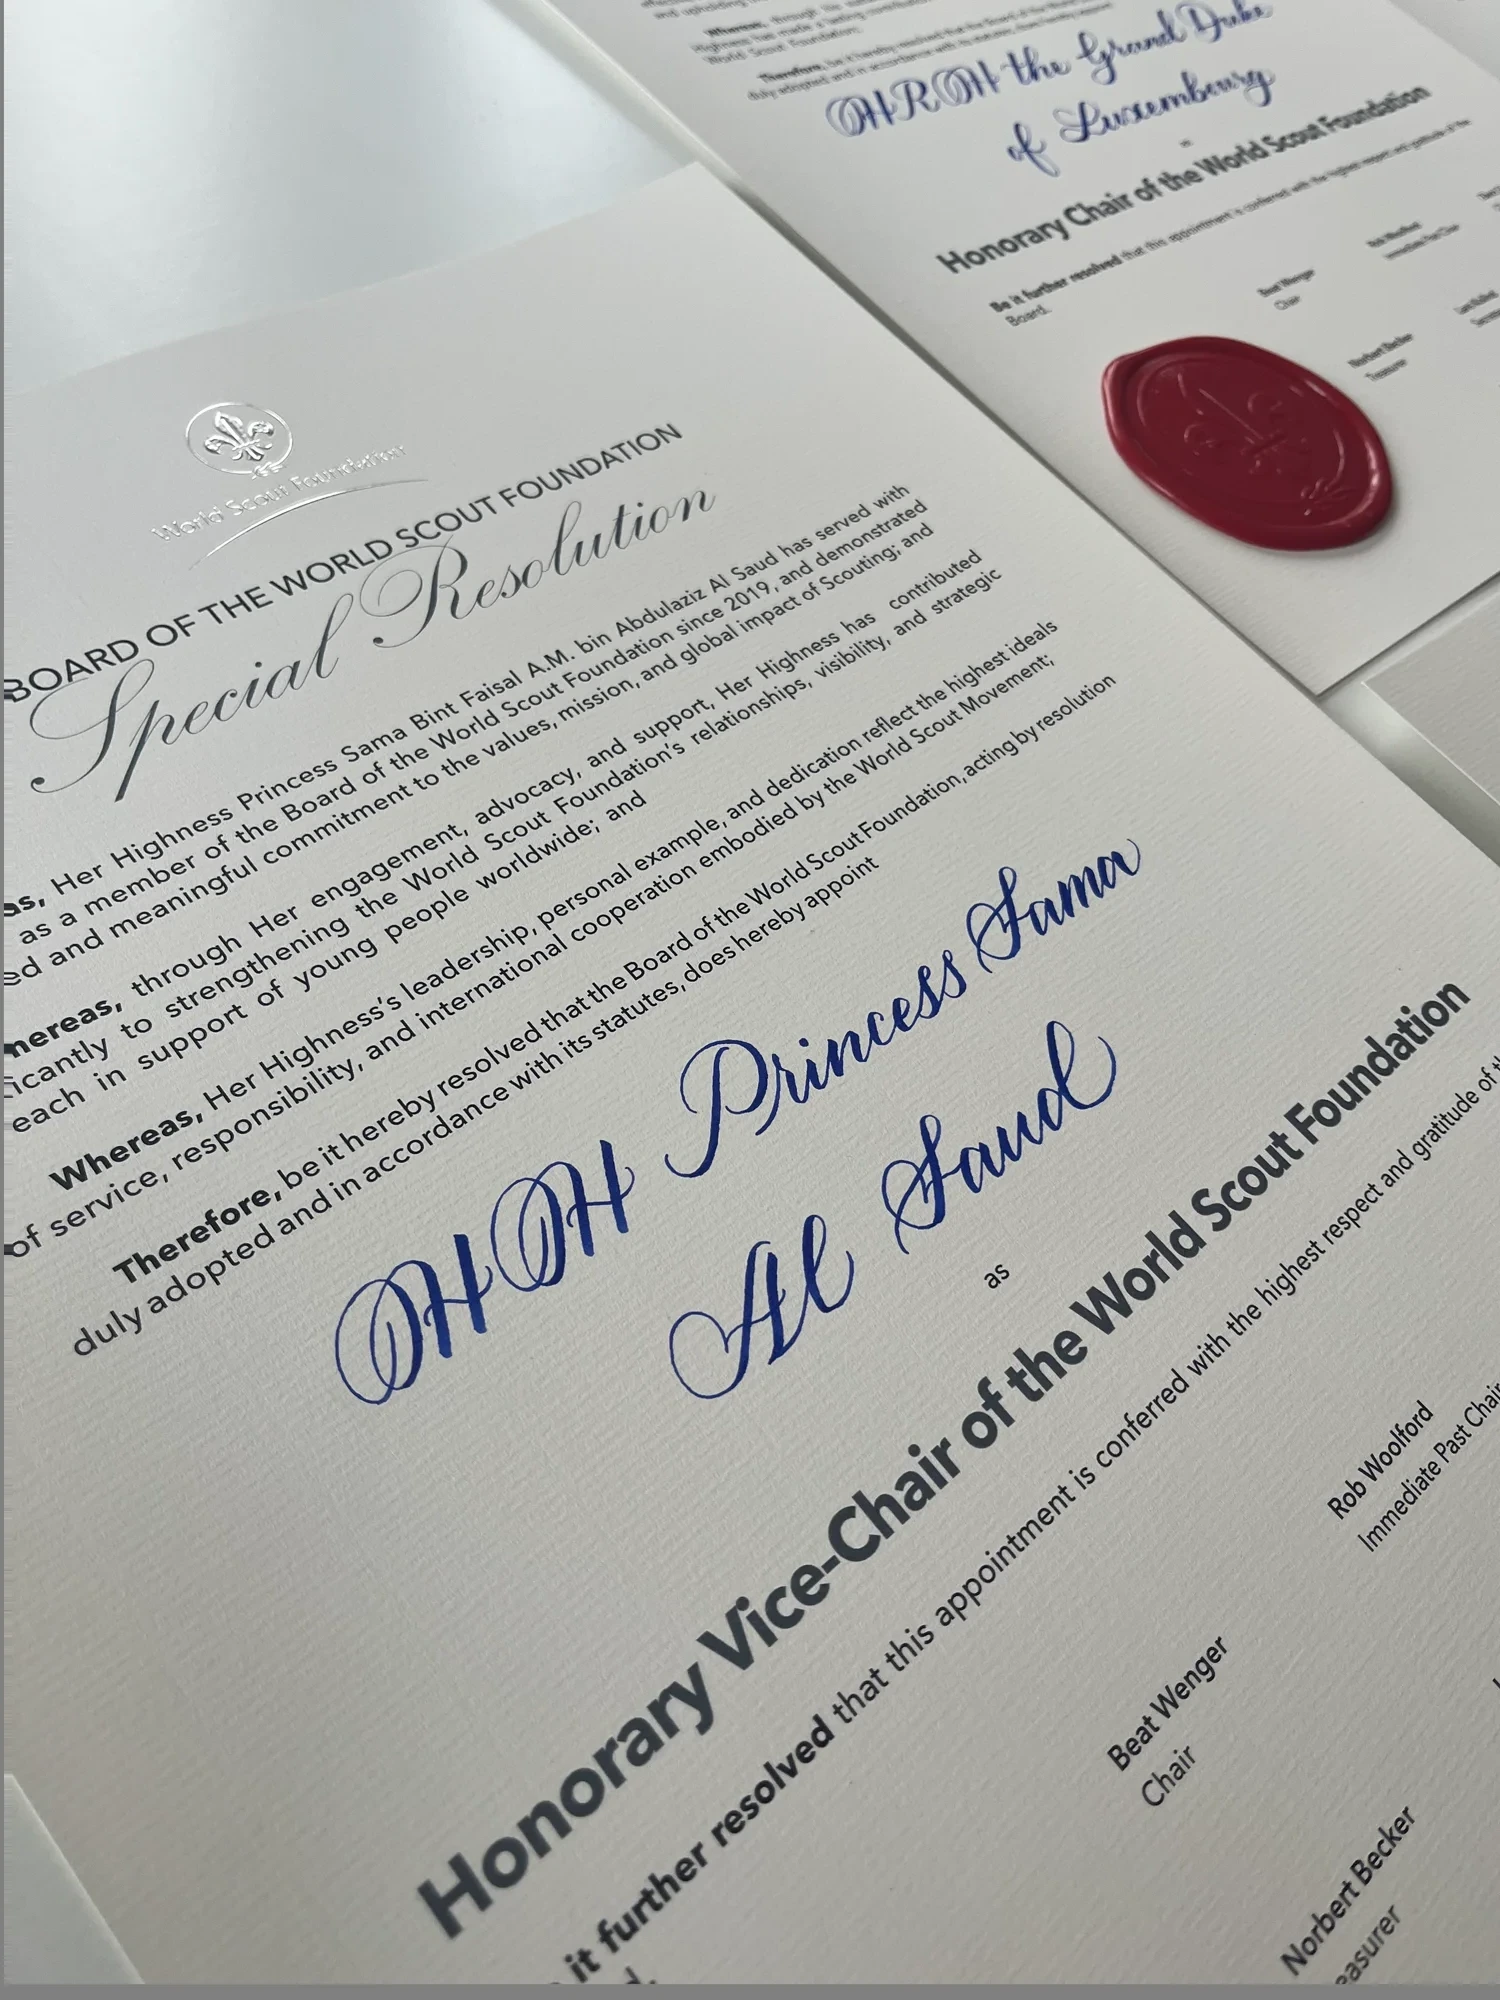 World Scout Foundation
BOARD OF THE WORLD SCOUT FOUNDATION
Special Resolution
as, Her Highness Princess Sama Bint Faisal A.M. bin Abdulaziz Al Saud has served with
as a member of the Board of the World Scout Foundation since 2019, and demonstrated
ed and meaningful commitment to the values, mission, and global impact of Scouting; and
hereas, through Her engagement, advocacy, and support, Her Highness has contributed
icantly to strengthening the World Scout Foundation's relationships, visibility, and strategic
each in support of young people worldwide; and
Whereas, Her Highness's leadership, personal example, and dedication reflect the highest ideals
of service, responsibility, and international cooperation embodied by the World Scout Movement;
Therefore, be it hereby resolved that the Board of the World Scout Foundation, acting by resolution
duly adopted and in accordance with its statutes, does hereby appoint
HH Princess Sama
Al Saud
as
Honorary Vice-Chair of the World Scout Foundation
it further resolved that this appointment is conferred with the highest respect and gratitude of
Rob Woolford
Immediate Past Chair
Beat Wenger
Chair
Norbert Becker
easurer
World Scout Foundation;
Therefore, be it hereby resolved that the Board of the
duly adopted and in accordance with its statutes, does hereby appoint
HRH the Grand Duke
of Luxembourg
as
Honorary Chair of the World Scout Foundation
Be it further resolved that this appointment is conferred with the highest respect and gratitude of the
Board.
Beat Wenger
Chair
Rob Woolford
Immediate Past Chair
Norbert Becker
Treasurer